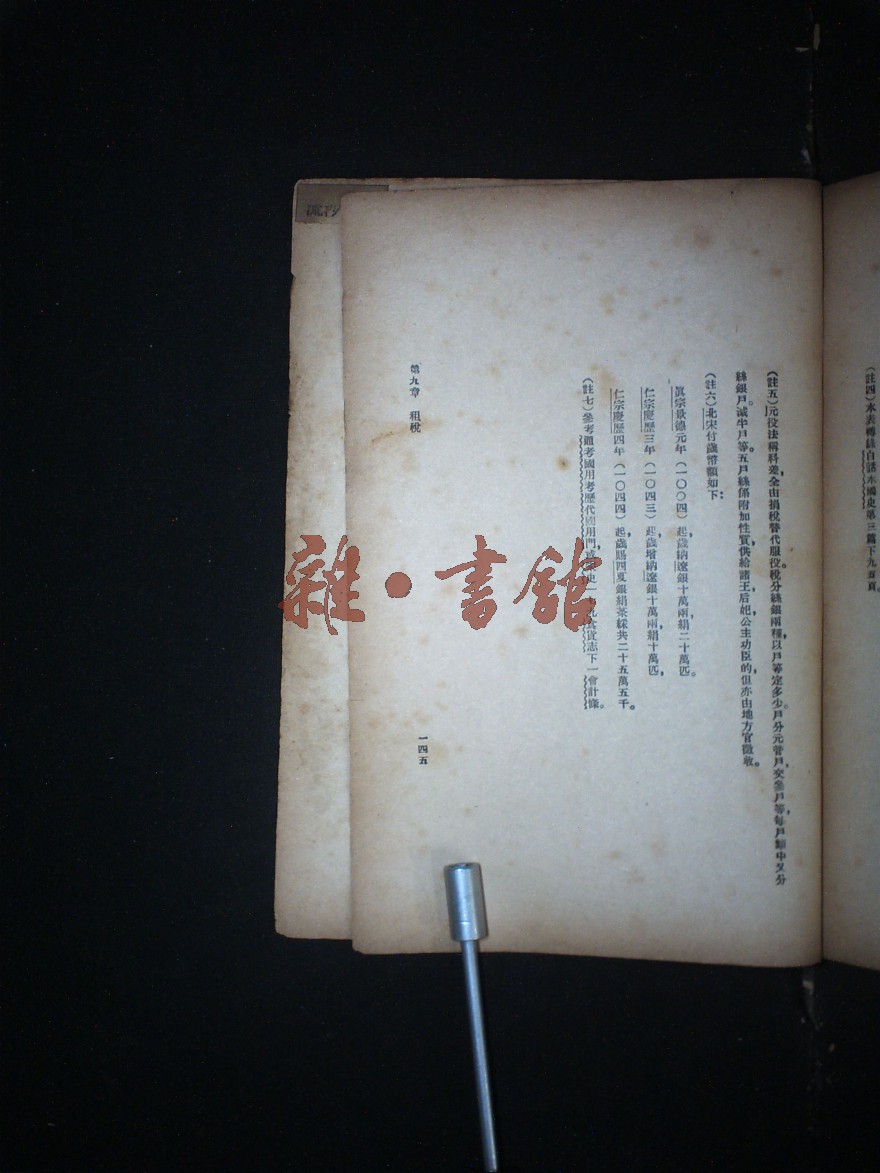 (註四)本表轉錄自話本國史第三篇下九五頁。
(註五)元役法稱科差,全由捐稅替代服役。稅分絲銀兩種,以戶等定多少。戶分元管戶,交參戶等,每戶類中又分
絲銀戶減半戶等。五戶絲係附加性質,供給諸王后妃公主功臣的,但亦由地方官徵收。
(註六)北宋付歲幣額如下:
眞宗景德元年(一〇〇四)起,歲納遼銀十萬兩,絹二十萬匹。
仁宗慶歷三年(一〇四三)起,歲增納遼銀十萬兩,絹十萬匹,
仁宗慶歷四年(一〇四四)起,歲賜西夏銀絹茶綵共二十五萬五千。
(註七)參考通考國用考歷代國用門,史一七九食貨志下一會計條。
第九章 租稅
一四五
雜·書館